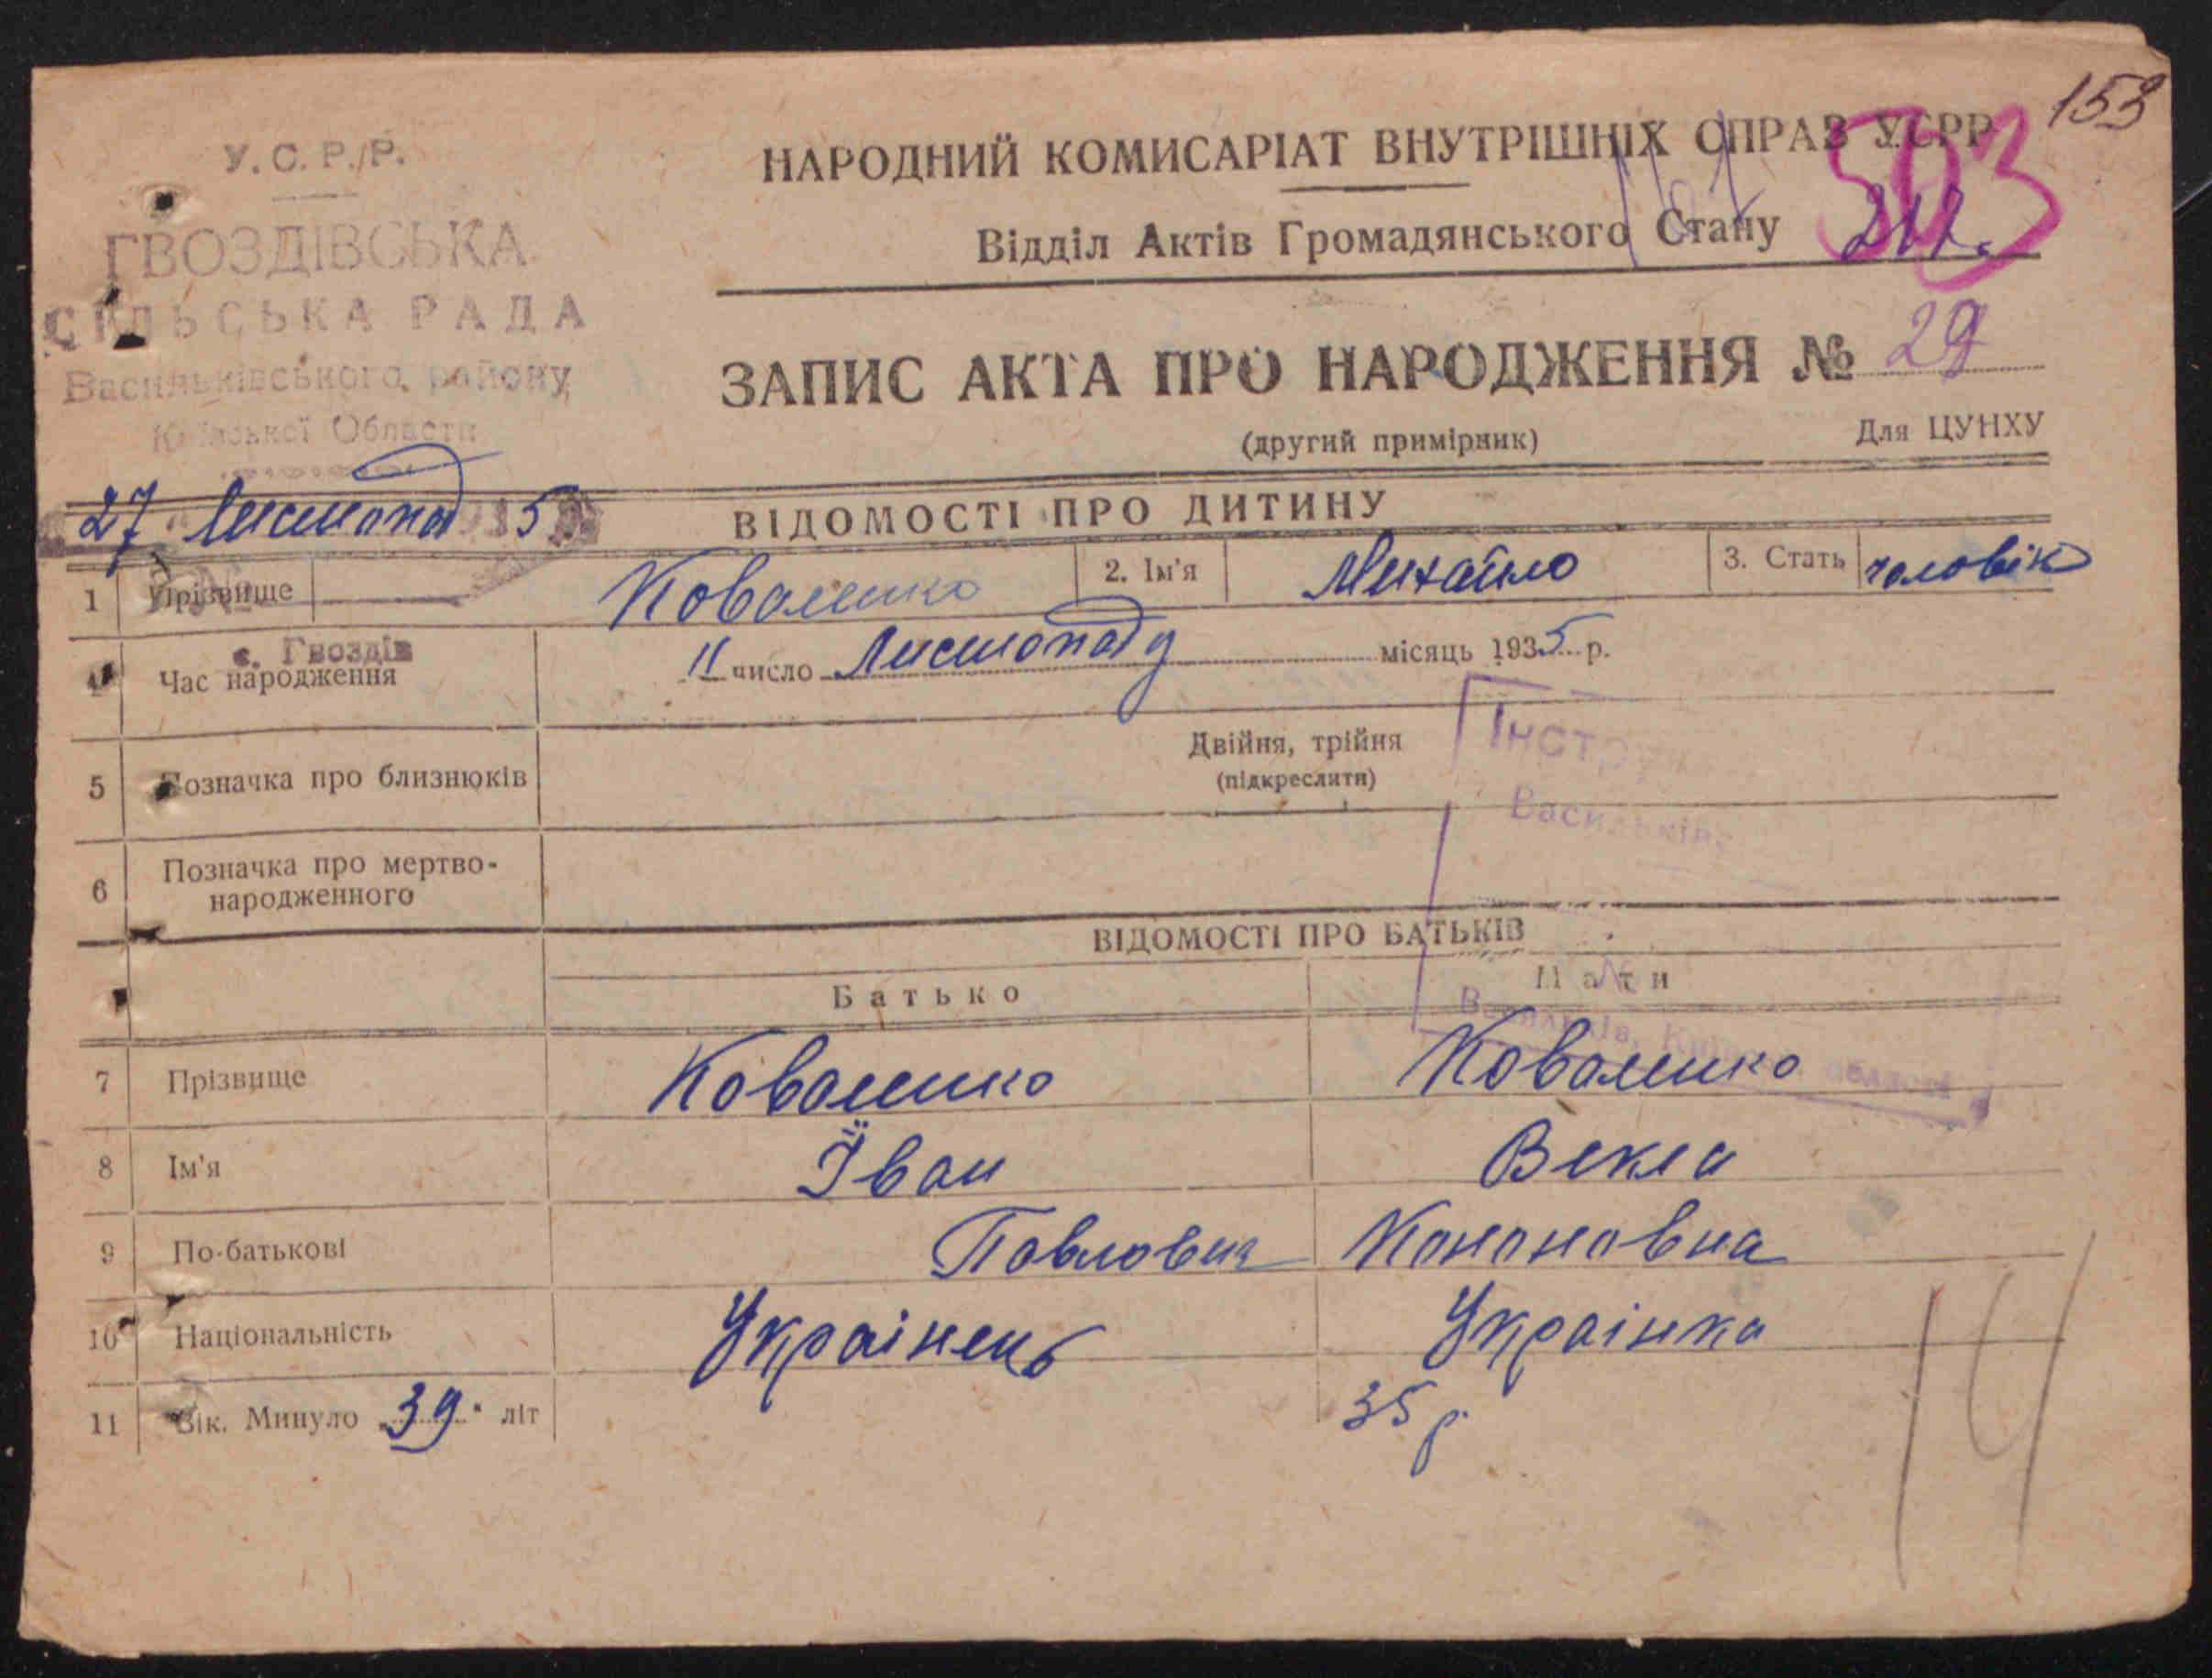 153
У.С.Р.Р.
ГВОЗДІВСЬКА
СІЛЬСЬКА РАДА
Васильківського району,
Київської Области
27 Листопад 1935
с. Гвоздів
НАРОДНИЙ КОМИСАРІАТ ВНУТРІШНІХ СПРАВ УСРР
503
Відділ Актів Громадянського Стану
217.
ЗАПИС АКТА ПРО НАРОДЖЕННЯ № 29
(другий примірник)
Для ЦУНХУ
ВІДОМОСТІ ПРО ДИТИНУ
1 Прізвище Коваленко 2. Ім'я Михайло 3. Стать чоловік
4 Час народження 11 число Листопаду місяць 1935 р.
5 Позначка про близнюків Двійня, трійня
(підкреслити)
Інстр
Васильків
6 Позначка про мертво-
народженного
ВІДОМОСТІ ПРО БАТЬКІВ
Батько Мати
Васильків, Київ області
7 Прізвище Коваленко Коваленко
8 Ім'я Іван Векла
9 По-батькові Павлович Кононовна
10 Національність Українець Українка
11 Вік. Минуло „39" літ 35 р.
14